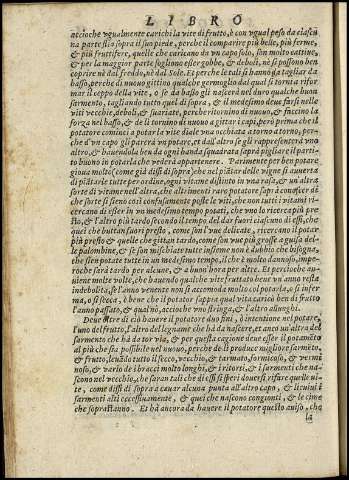 LIBRO
accioche vgualmente carichi la vite di frutto, è con vgual peso da ciascu
na parte sti sopra il suo piede, perche il comparire piu belle, piu ferme,
& piu fruttifere, quelle che caricano da vn capo solo, son molto cattiue,
& per la maggior parte sogliono esser gobbe, & deboli, nè si possono ben
coprire nè dal freddo, nè dal Sole. Et perche le tali si hanno da tagliar da
basso, perche di nuouo gittino qualche germoglio dal qual si torni a rifor
mar il ceppo della vite, o se da basso gli nascerà nel duro qualche buon
sarmento, tagliando tutto quel di sopra, & il medesimo deue farsi nelle
viti vecchie, deboli, & suariate, perche ritornino di nuouo, & faccino la
forza nel basso, & de li tornino di nuouo a gittar i capi, però prima che il
potatore cominci a potar la vite diale vna occhiata a torno a torno, per-
che da vn capo gli parrà vn potare, et dall'altro se gli rappresenterà vno
altro, & hauendola ben da ogni banda squatrata saprà pigliare il parti-
to buono in potarla che vederà appartenere. Parimente per ben potare
gioua molto (come già dissi di sopra) che nel piãtar delle vigne si auuerta
di piãtarle tutte per ordine, ogni vitame distinto in vna casa, & un'altra
sorte di vitame nell'altra, che altrimenti raro potatore saprà conoscer di
che sorte si sieno così confusamente poste le viti, che non tutti i vitami ri-
cercano di esser in vn medesimo tempo potati, che vuolo ricerca piu pre
sto, & l'altro piu tardi secondo il tempo del dar fuori ciascuno di essi, che
quei che buttan fuori presto, come son l'vue delicate, ricercano il potar
piu presto & quelle che gittan tardo, come son vue piu grosse a guisa del-
le palombine, & se son mischiate tutte insieme non è dubbio che bisogna,
che sien potate tutte in vn medesimo tempo, il che è molto dannoso, impe-
roche sarà tardo per alcune, & a buon hora per altre. Et percioche au-
uiene molte volte, che hauendo qualche vite fruttato bene vn anno resta
indebolita, se l'anno venente non si accomoda molto col potarla, o si infer
ma, o si secca, è bene che il potator sappia qual vita caricò ben di frutto
l'anno passato, & qual nò, accioche vno stringa, & l'altro allunghi.
Deue oltre di ciò hauere il potatore duo fini, ò intentione nel potare,
l'uno del frutto, l'altro del legname che hà da nascere, et anco un'altra del
sarmento che hà da tor via, & per questa cagione deue esser il potamẽto
al piu che sia possibile nel nuouo, perche de li produce migliore sarmẽto,
& frutto, leuado tutto il secco, vecchio, & tarmato, formicoso, & vermi
noso, & vario de i bracci molto lunghi, & i ritorti, & i sarmenti che na-
scono nel vecchio, che saran tali che di essi si speri douersi rifare quelle vi-
te, come dissi di sopra a cauar alcuna punta all'altro capo, & li cuiui i
sarmenti alti eccessiuamente, & quei che nascono congionti, & le cime
che soprastanno. Et hà ancora da hauere il potatore questo auiso, che
la